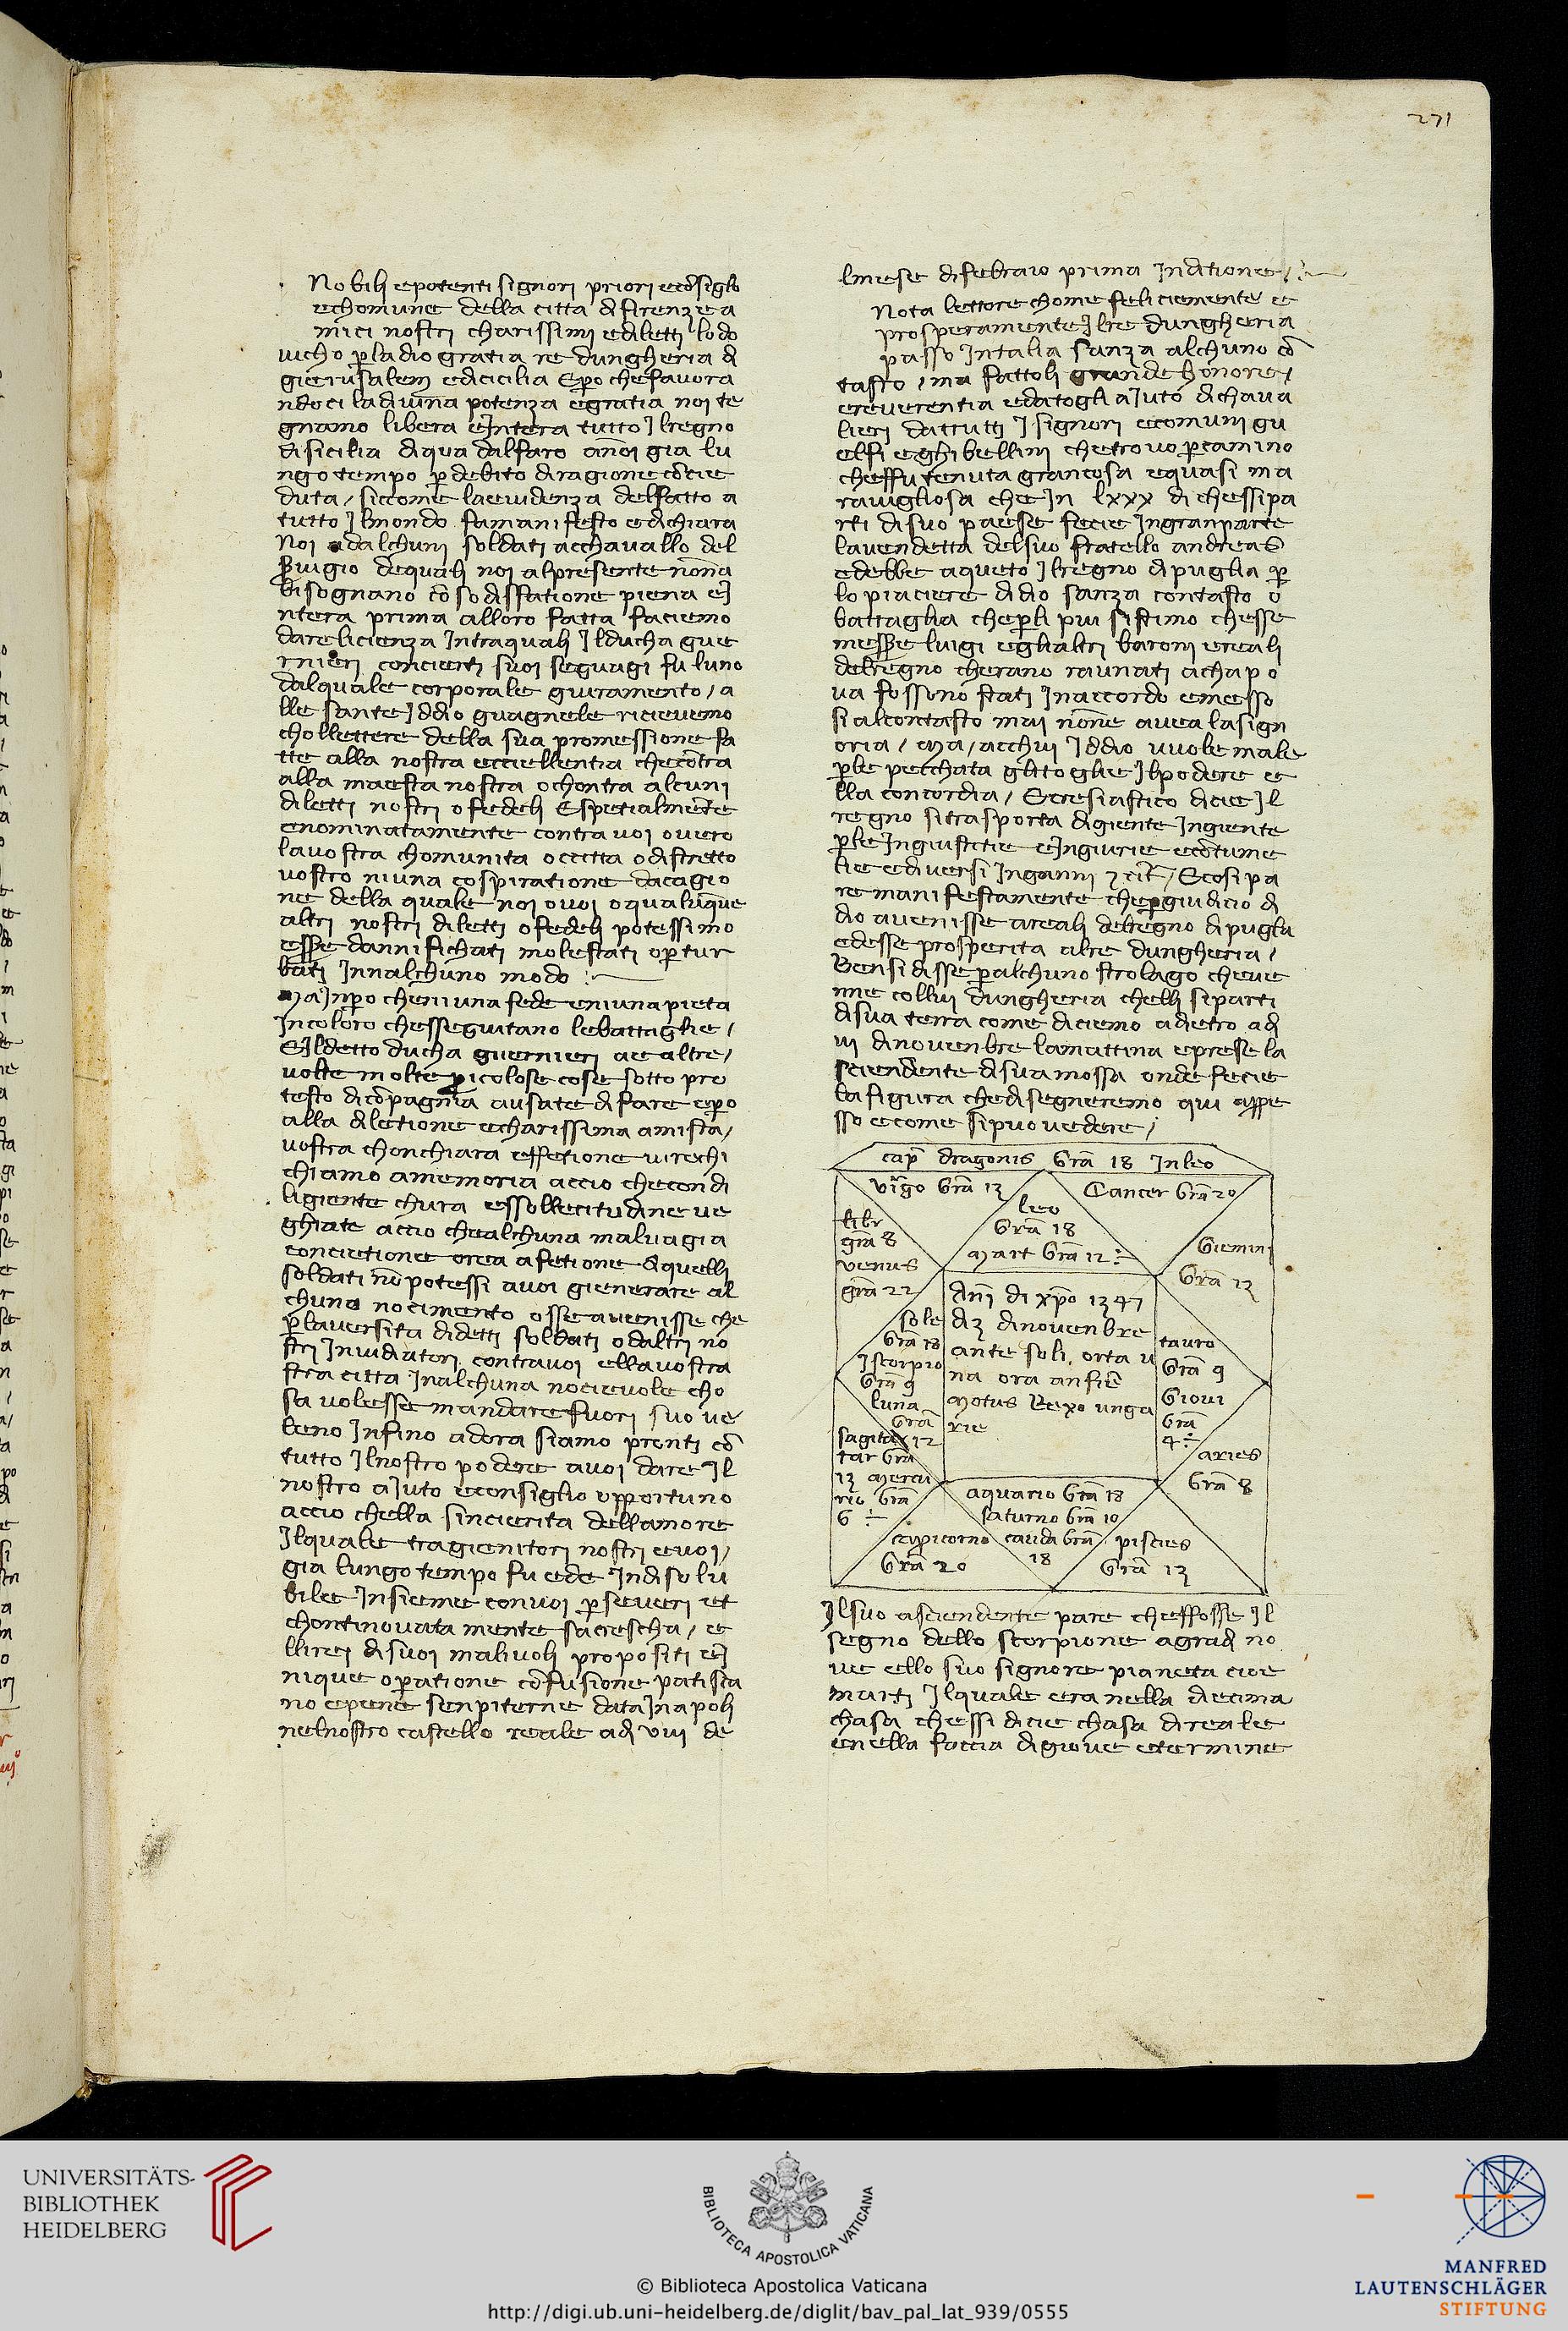 271
Nobili epotenti signori priori ecōsiglo
echomune della citta di firenze a
mici nostri charissimi ediletti lodo
uicho ꝑla dio gratia re dungheria di
gierusalem edicicilia Eꝑo chefavora
ndoci la diuina potenza egratia noi te
gnamo libera eJntera tutto Jlregno
disicilia diqua dalfaro anoi gia lu
ngo tempo ꝑ debito diragione cōcie
duta / siccome laeuidenza delfatto a
tutto Jlmondo famanifesto edichiara
Noi adalchuni soldati acchauallo del
seruigio dequali noi alpresente nonna
bisognano cō sodisfatione piena eJ
ntera prima alloro fatta faciemo
darelicienza Jntraquali Jlducha gue
rnieri concierti suoi seguagi fu luno
dalquale corporale giuramento / a
lle sante Jddio guagnele riceuemo
chollettere della sua promessione fa
tte alla nostra ecciellentia checōtra
alla maesta nostra ochontra alcuni
diletti nostri ofedeli Espetialmente
enominatamente contra uoi ouero
lauostra chomunita ocitta odistretto
uostro niuna cospiratione dacagio
ne della quale noi ouoi oqualūque
altri nostri diletti ofedeli potessimo
essere dannifichati molestati oꝑtur
bati Jnnalchuno modo
Ma Jnꝑo cheniuna fede eniuna pieta
Jncoloro chesseguitano lebattaglie /
EJldetto ducha guernieri ae altre /
uolte molte ꝑicolose cose sotto pre
testo dicōpagnia ausate difare eꝑo
alla diletione echarissima amista /
uostra chonchiara effetione uirechi
chiamo amemoria accio checondi
ligiente chura essollecitudine ue
ghiate accio chealchuna maluagia
concietione orea afetione diquelli
soldati nō potessi auoi gienerare al
chuno nocimento osse auenisse che
ꝑlauersita didetti soldati odaltri no
stri Jnuidiatori contrauoi ellauostra
stra citta Jnalchuna nocieuole cho
sa uolesse mandare fuori suo ue
leno Jnfino adora siamo pronti cō
tutto Jlnostro podere auoi dare Jl
nostro aiuto econsiglio opportuno
accio chella sincierita dellamore
Jlquale tragienitori nostri euoi /
gia lungo tempo fu ede Jndisolu
bile Jnsieme conuoi ꝑseueri et
chontinouata mente sacrescha / e
llirei disuoi maliuoli propositi eJ
nique oꝑatione cōfusione patisca
no epene senpiterne data Jnapoli
nelnostro castello reale adi viii de
lmese difebraio prima Jnditione /
Nota lettore chome feliciemente e
prosperamente Jlre dungheria
passo Jntalia sanza alchuno cō
tasto / ma fattoli grande honore /
ereuerentia edatogli aiuto dichaua
lieri dattutti J signori ecomuni gu
elfi eghibellini chetrouo ꝑcamino
cheffu tenuta grancosa equasi ma
rauigliosa che Jn lxxx di chessipa
rti disuo paese fecie Jngranparte
lauendetta delsuo fratello andreas
edebbe aqueto Jlregno di puglia ꝑ
lo piaciere didio sanza contasto o
battaglia cheꝑli piu sistimo chesse
messere luigi eglialtri baroni ereali
delregno cherano raunati achapo
ua fossono stati Jnaccordo emesso
si alcontasto mai nōne auea lasign
oria / Ma / acchui Jddio uuole male
ꝑle pecchata glitoglie Jlpodere e
lla concordia / Ecresiastico dicie Jl
regno sitrasporta digiente Jngiente
ꝑle Jngiustitie eJngiurie ecōtume
lie ediuersi Jnganni ⁊ cit̄ / Ecosi pa
re manifestamente cheꝑgiudicio di
dio auenisse areali delregno di puglia
edesse prosperita alre dungheria /
Bensi disse ꝑalchuno strolago cheue
nne collui dungheria chelli siparti
disua terra come diciemo adietro adi
iii dinouenbre lamattina eprese la
sciendente disuamossa onde fecie
lafigura chedisegneremo qui appre
sso ecome sipuo uedere /
cap̄ dragonis Grā 18 Jnleo
Virgo Grā 13
Cancer Grā 20
leo
Grā 18
Mart Grā 12
libr
grā 8
uenus
grā 22
Giemini
Grā 13
Anj di xp̄o 1347
di 3 dinouenbre
ante soli orta u
na ora anfiē
Motus Rexo unga
rie
sole
Grā 18
Jscorpio
Grā 9
luna
Grā
12
tauro
Grā 9
Gioui
Grā
4
sagita
tar Grā
13 Mercu
rio Grā
6
aries
Grā 8
aquario Grā 18
saturno Grā 10
cauda Grā
18
capricorno
Grā 20
piscies
Grā 13
Jlsuo asciendente pare cheffosse Jl
segno dello scorpione agradi no
ue ello suo signore pianeta cioe
marti Jlquale era nella decima
chasa chessi dicie chasa direale
enella faccia digioue etermine
UNIVERSITÄTS-
BIBLIOTHEK
HEIDELBERG
BIBLIOTECA APOSTOLICA VATICANA
© Biblioteca Apostolica Vaticana
http://digi.ub.uni-heidelberg.de/diglit/bav_pal_lat_939/0555
MANFRED
LAUTENSCHLÄGER
STIFTUNG